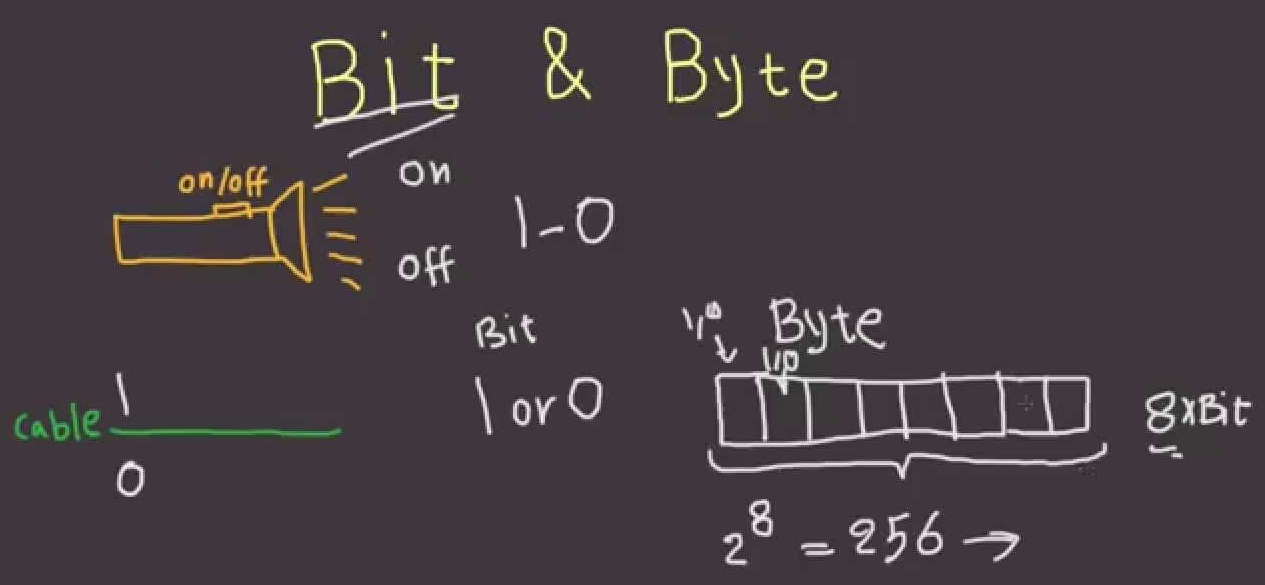 Bit & Byte
on/off
On
Off
1-0
Bit
1 or 0
cable
1
0
1,0
Byte
1,0
8xBit
2⁸ = 256 →